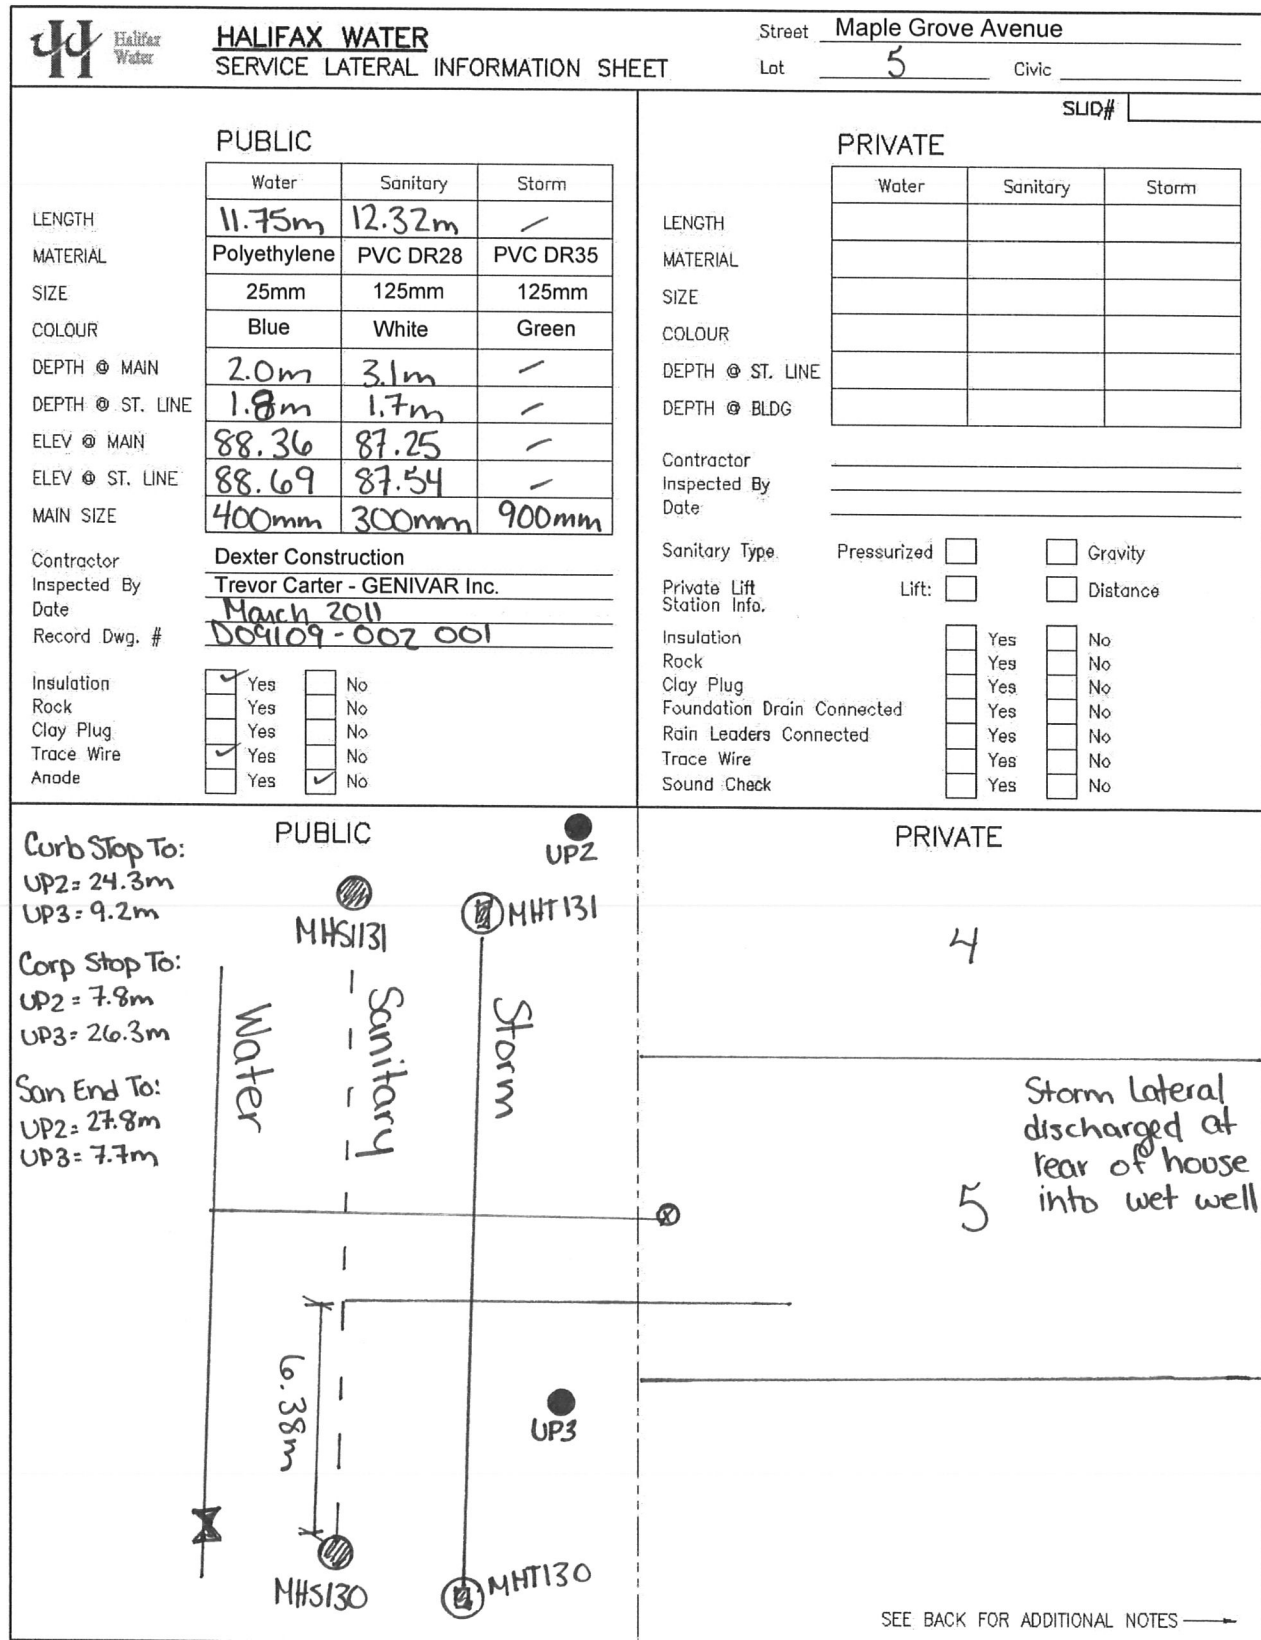 Halifax
Water
HALIFAX WATER
SERVICE LATERAL INFORMATION SHEET
Street Maple Grove Avenue
Lot 5 Civic
SLID#
PUBLIC
Water Sanitary Storm
LENGTH 11.75m 12.32m —
MATERIAL Polyethylene PVC DR28 PVC DR35
SIZE 25mm 125mm 125mm
COLOUR Blue White Green
DEPTH @ MAIN 2.0m 3.1m —
DEPTH @ ST. LINE 1.8m 1.7m —
ELEV @ MAIN 88.36 87.25 —
ELEV @ ST. LINE 88.69 87.54 —
MAIN SIZE 400mm 300mm 900mm
Contractor Dexter Construction
Inspected By Trevor Carter - GENIVAR Inc.
Date March 2011
Record Dwg. # D09109-002 001
Insulation ✓ Yes No
Rock Yes No
Clay Plug Yes No
Trace Wire ✓ Yes No
Anode Yes ✓ No
PRIVATE
Water Sanitary Storm
LENGTH
MATERIAL
SIZE
COLOUR
DEPTH @ ST. LINE
DEPTH @ BLDG
Contractor
Inspected By
Date
Sanitary Type. Pressurized Gravity
Private Lift Lift: Distance
Station Info.
Insulation Yes No
Rock Yes No
Clay Plug Yes No
Foundation Drain Connected Yes No
Rain Leaders Connected Yes No
Trace Wire Yes No
Sound Check Yes No
PUBLIC
Curb Stop To:
UP2= 24.3m
UP3= 9.2m
Corp Stop To:
UP2= 7.8m
UP3= 26.3m
San End To:
UP2= 27.8m
UP3= 7.7m
UP2
MHS131
MHT131
Water
Sanitary
Storm
6.38m
UP3
MHS130
MHT130
PRIVATE
4
Storm Lateral
discharged at
rear of house
into wet well
5
SEE BACK FOR ADDITIONAL NOTES